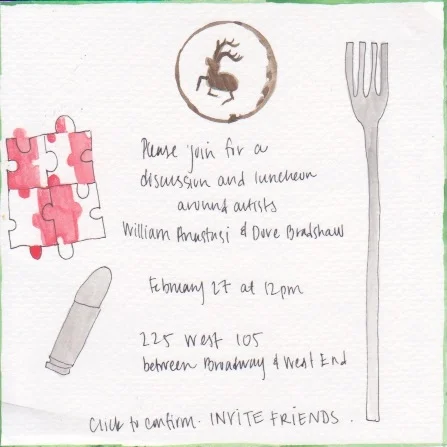 Please join for a
discussion and luncheon
around artists
William Anastasi & Dove Bradshaw
February 27 at 12pm
225 West 105
between Broadway & West End
Click to confirm. INVITE FRIENDS.